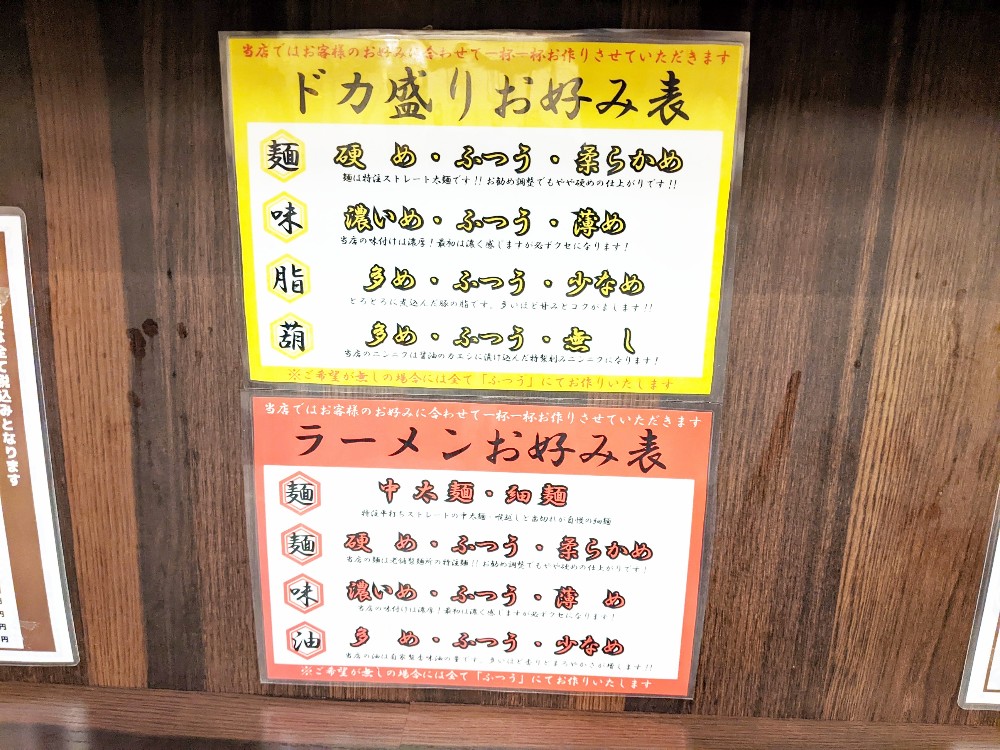 当店ではお客様のお好みに合わせて一杯一杯お作りさせていただきます
ドカ盛りお好み表
麺 硬め・ふつう・柔らかめ
麺は特注ストレート太麺です!!お勧め調整でもやや硬めの仕上がりです!!
味 濃いめ・ふつう・薄め
当店の味付けは濃厚!最初は濃く感じますが必ずクセになります!
脂 多め・ふつう・少なめ
とろとろに煮込んだ豚の脂です。多いほど甘みとコクがまします!!
葫 多め・ふつう・無し
当店のニンニクは醤油のカエシに漬け込んだ特製刻みニンニクになります!
※ご希望が無しの場合には全て「ふつう」にてお作りいたします
当店ではお客様のお好みに合わせて一杯一杯お作りさせていただきます
ラーメンお好み表
麺 中太麺・細麺
特注平打ちストレートの中太麺・喉越しと歯切れが自慢の細麺
麺 硬め・ふつう・柔らかめ
当店の麺は老舗製麺所の特注麺!!お勧め調整でもやや硬めの仕上がりです!
味 濃いめ・ふつう・薄め
当店の味付けは濃厚!最初は濃く感じますが必ずクセになります!
油 多め・ふつう・少なめ
当店の油は自家製香味油の量です。多いほど香りとまろやかさが増します!!
※ご希望が無しの場合には全て「ふつう」にてお作りいたします
は全て税込みとなります
円
円
円